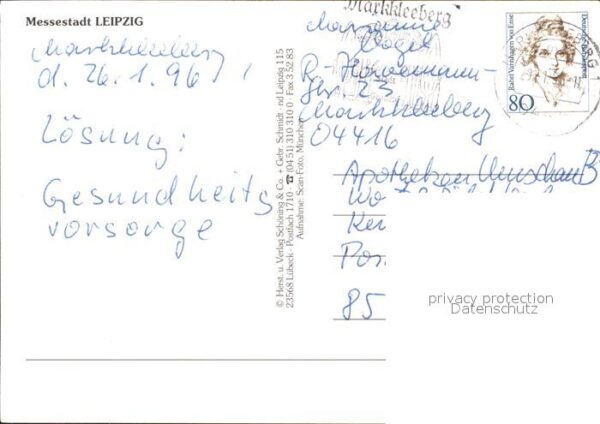 Messestadt LEIPZIG
Markkleeberg
d. 26.1.96
Lösung:
Gesundheits
vorsorge
© Herst. u. Verlag Schöning & Co. + Gebr. Schmidt · nd Leipzig 115
23568 Lübeck · Postfach 1710 · ☎ (04 51) 310 310 0 · Fax 3 52 83
Aufnahme: Scan-Foto, München
Markkleeberg
Marianne
Vogel
Str. 23
Markkleeberg
04416
Apotheken Umschau B
Wo
Ker
Pos
85
Rahel Varnhagen von Ense
Deutsche Bundespost
80
privacy protection
Datenschutz